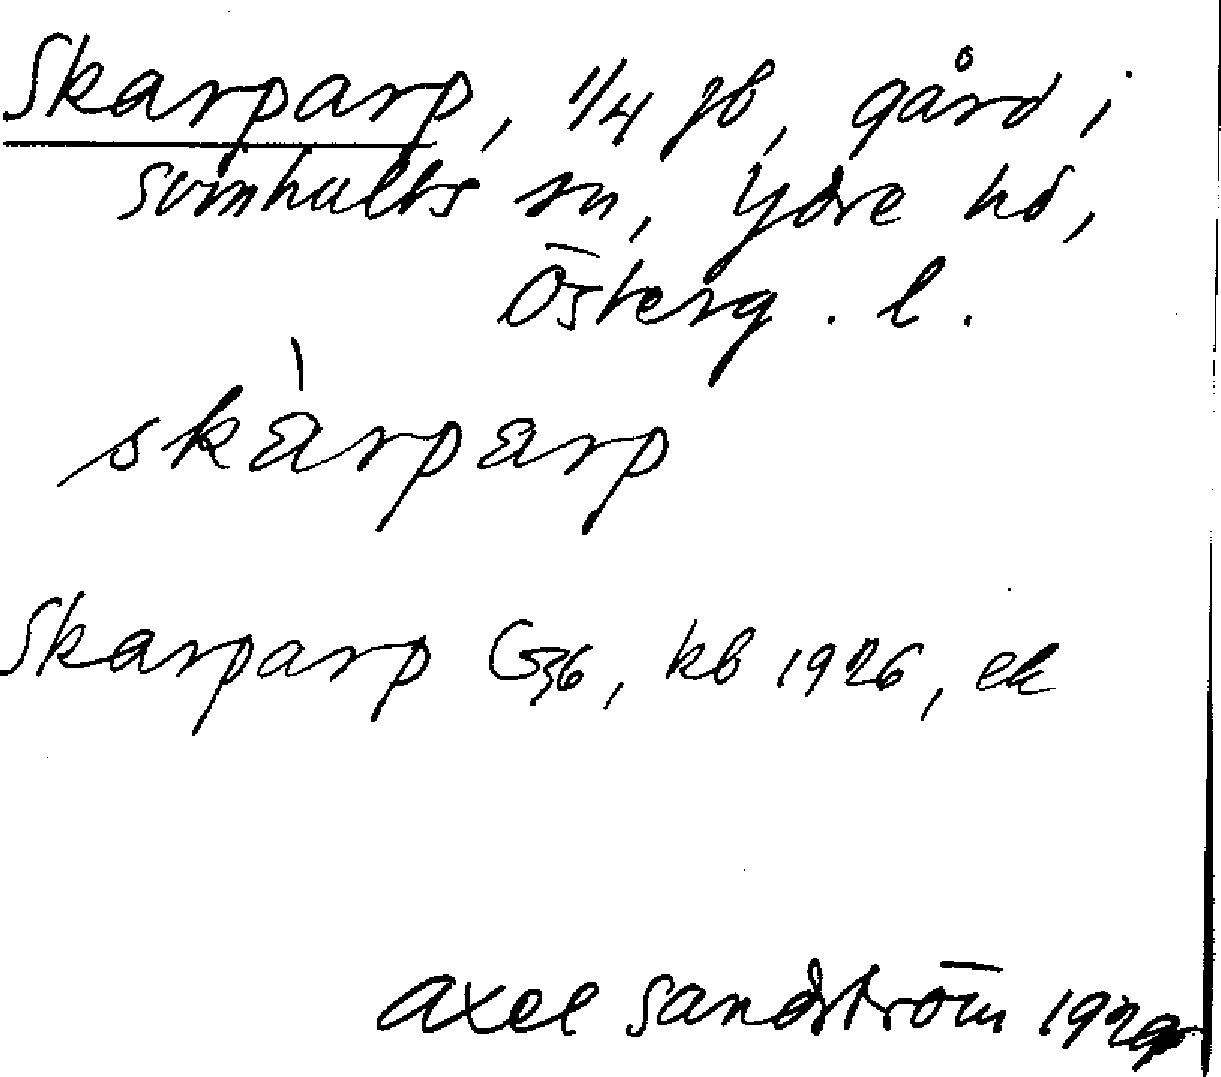 Skarparp, 1/4 jb, gård i
Svinhults sn, Ydre hd,
Österg. l.
skàrparp
Skarparp G36, kb 1926, ek
Axel Sandström 1929